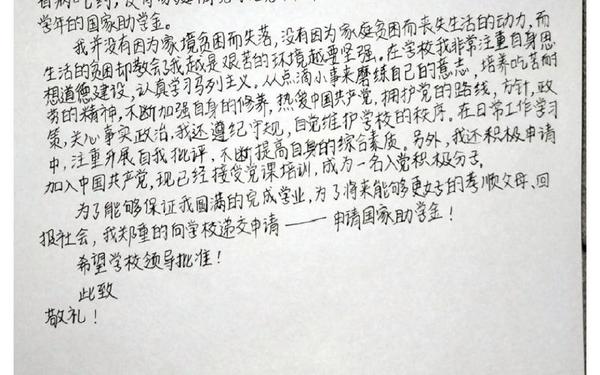 学年的国家助学金。
我并没有因为家境贫困而失落,没有因为家庭贫困而丧失生活的动力,而
生活的贫困却教会了我越是艰苦的环境越要坚强。在学校我非常注重自身思
想道德建设,认真学习马列主义。从点滴小事来磨练自己的意志,培养吃苦耐
劳的精神,不断加强自身的修养,热爱中国共产党,拥护党的路线,方针,政
策,关心事实政治,我还遵纪守规,自觉维护学校的秩序。在日常工作学习
中,注重开展自我批评,不断提高自身的综合素质。另外,我还积极申请
加入中国共产党,现已经接受党课培训,成为一名入党积极分子。
为了能够保证我圆满的完成学业,为了将来能够更好的孝顺父母、回
报社会,我郑重的向学校递交申请——申请国家助学金!
希望学校领导批准!
此致
敬礼!